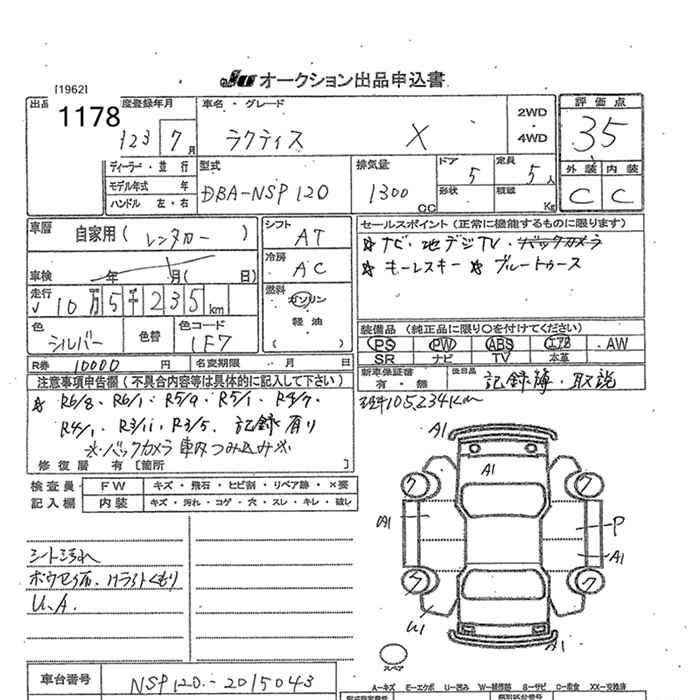 [1962]
JU オークション出品申込書
1178
度登録年月
車名・グレード
2WD
・
4WD
評価点
H23 7月
ラクティス X
35
ディーラー・並行
モデル年式 年
ハンドル 左・右
型式
DBA-NSP120
排気量
1300 CC
ドア 5
定員 5人
形状
積載 Kg
外装 内装
C C
車歴 自家用( レンタカー )
シフト AT
セールスポイント(正常に機能するものに限ります)
☆ナビ・地デジTV・バックカメラ
冷房 AC
☆キーレスキー ☆ブルートゥース
車検 年 月( 日)
走行 10万5千235km
燃料 ガソリン
軽油
( )
色 シルバー
色替
色コード 1F7
装備品(純正品に限り○を付けてください)
PS PW ABS エアB AW
SR ナビ TV 本革
R券 10000円
名変期限 月 日
新車保証書 有・無
後日品 記録簿・取説
注意事項申告欄(不具合内容等は具体的に記入して下さい)
☆ R6/8、R6/1、R5/9、R5/1、R4/7、
R4/1、R3/11、R3/5、記録有り
※バックカメラ車内つみ込み※
修復歴 有[箇所 ]
105,234Km
検査員
記入欄
FW キズ・飛石・ヒビ割・リペア跡・×要
内装 キズ・汚れ・コゲ・穴・スレ・キレ・破レ
シート汚れ
U.A.
A1
A1
7 7
A1
P
A1
7 7
U1
A1
スペア
車台番号 NSP120-2015043
A-キズ E-エクボ U-凹み W-補修跡 S-サビ C-腐食 XX-交換済